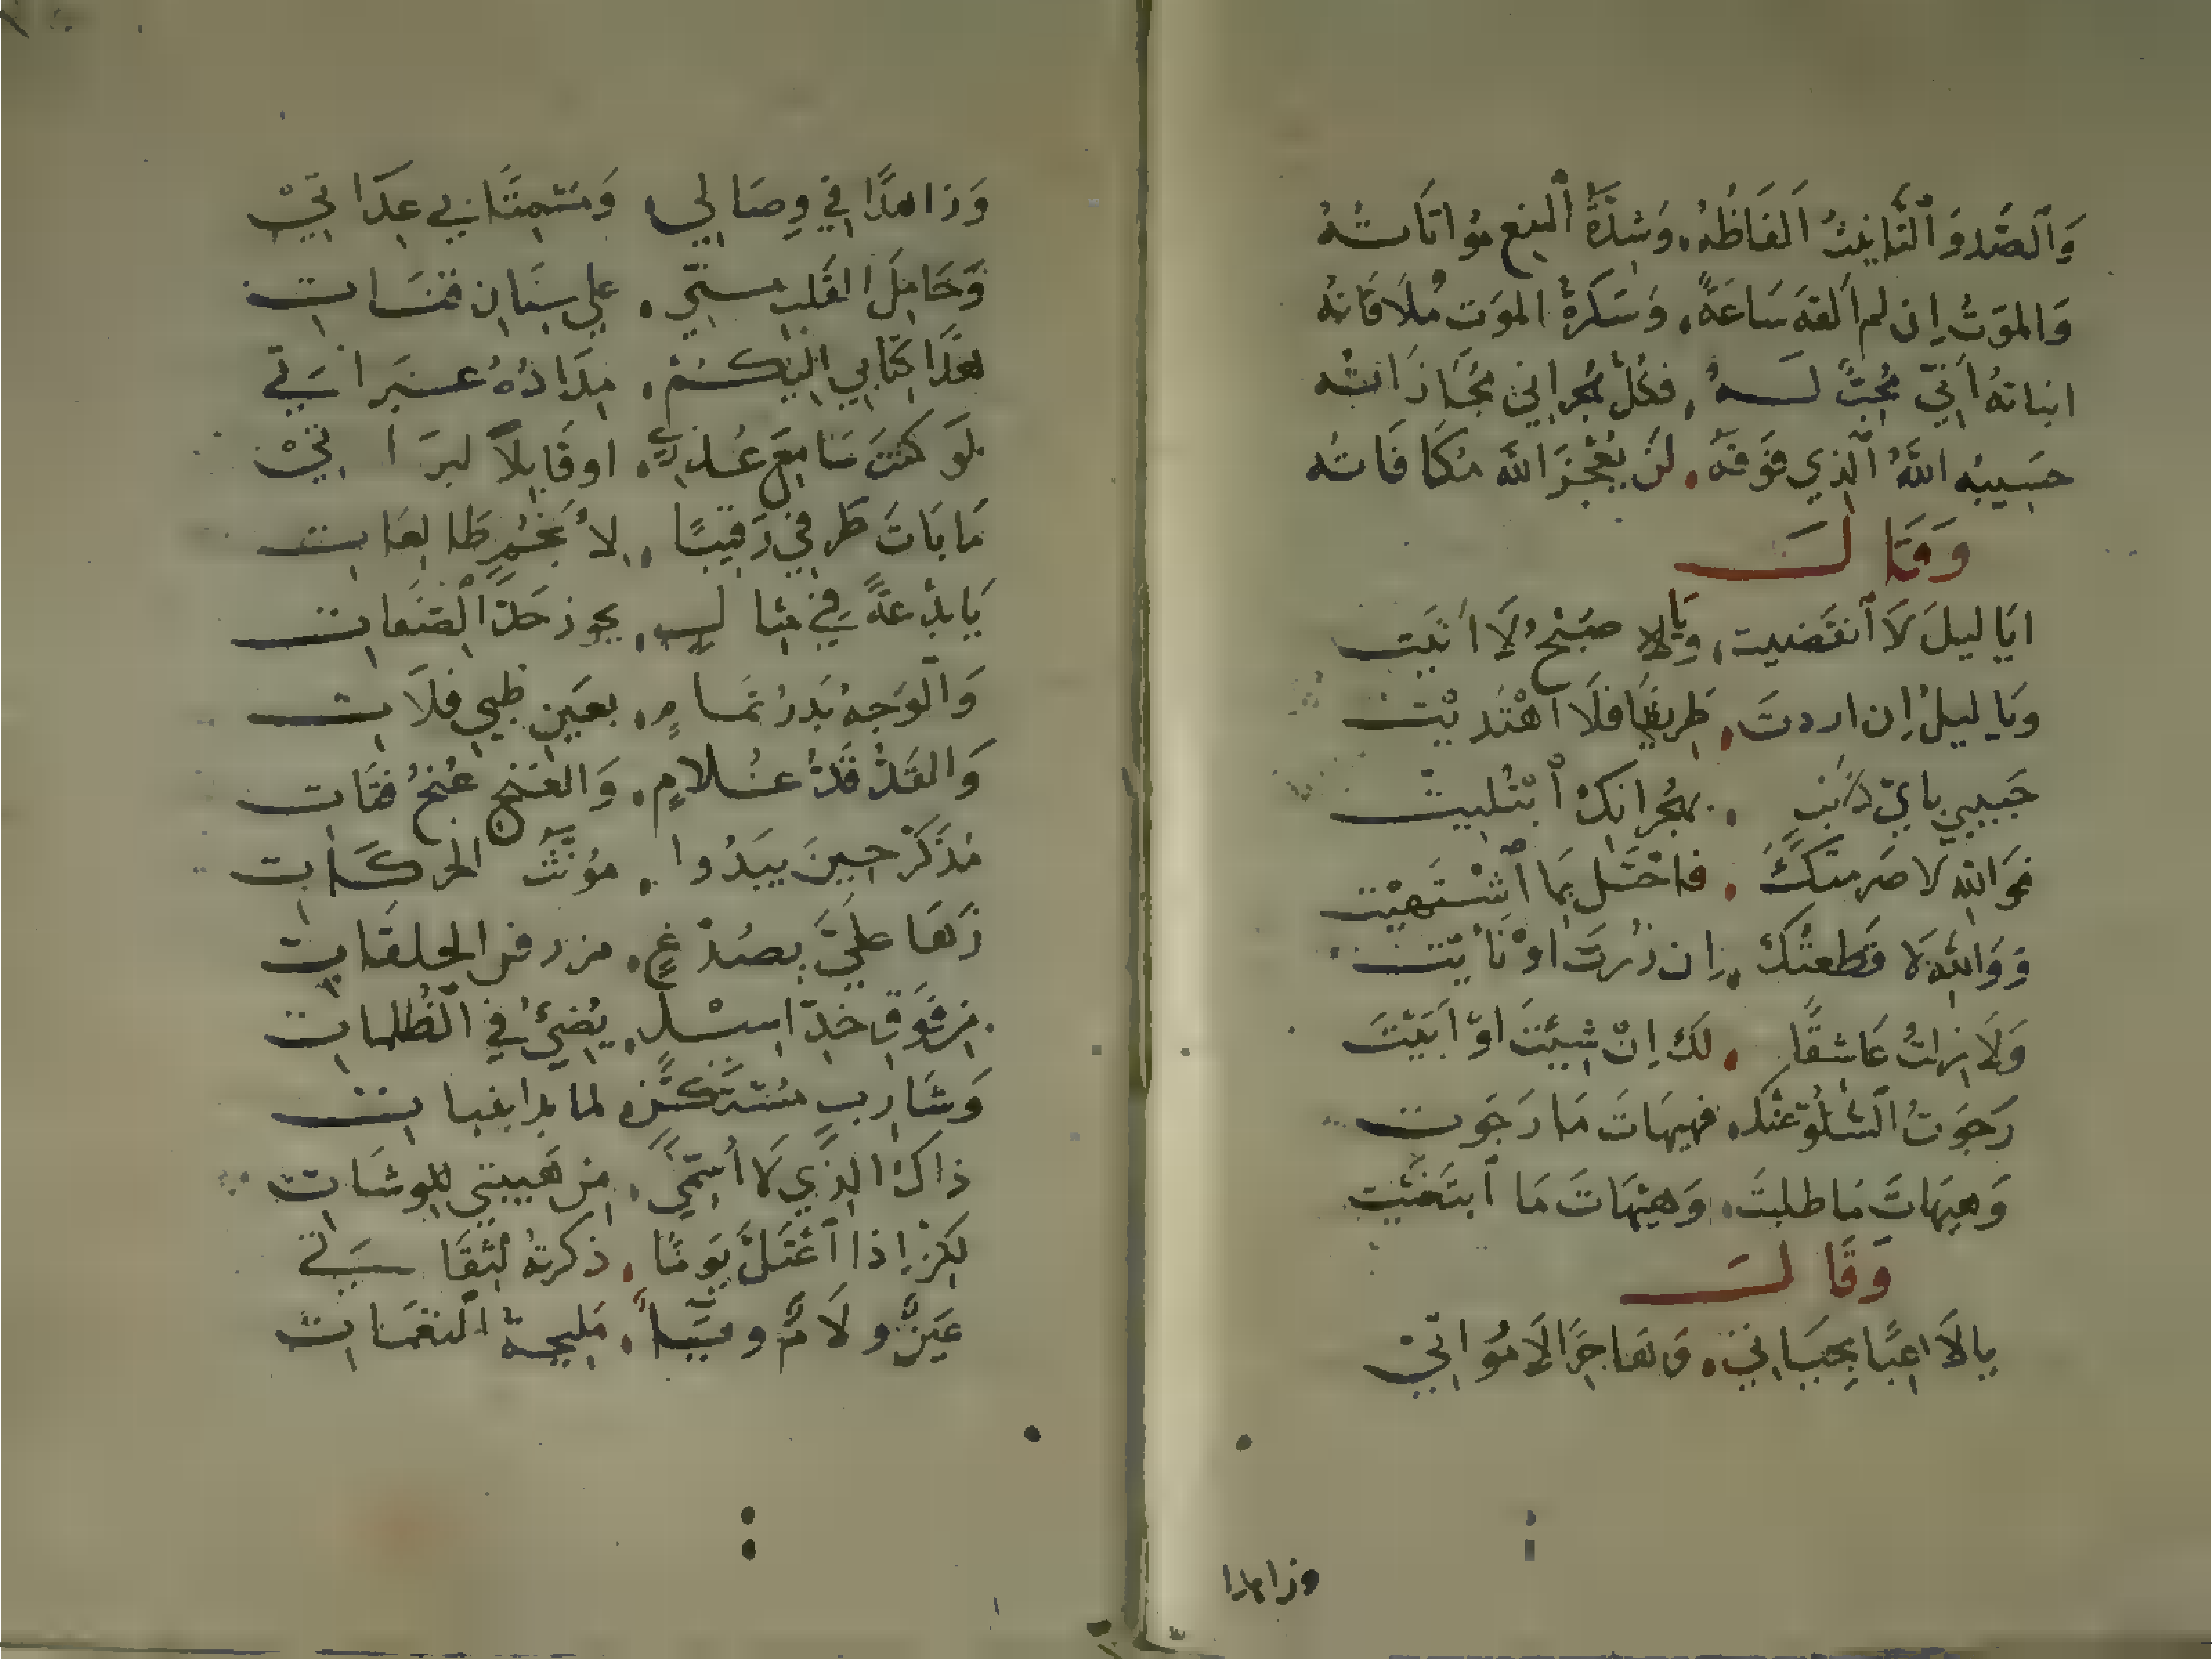 وَالصَّد وَالتَّانيثُ اَلفَاظُهُ، وَشدَّةُ المنع مُواتَاتُهُ
وَالموَتُ اِن لم اَلقهَ سَاعَةً، وَسَكرَةُ الموَتِ مُلَاقَاتهُ
اثباتهُ اَنّي مُحِبٌّ لَــهُ، فكُلُّ هجراني مُجَازَاتُه
حسَيبُه اللّهُ الّذي فوَقهَ، لَن يُعْجِزَ اللّه مُكَافَاتُه
وَقَالَ
ايَا ليلَ لَا اَنقضيت، وَيا لا صبْحُ لَا اَتَيت
وَيا ليلُ اِن اردتَ، طريقًا فلَا اهْتَدَيْت
حَبيبي باَيّ ذَنب، بهُجرانكَ اُبْتُليتْ
فوَاللّه لا صَرمتكَ، فاحْتَل بمَا اَشْتَهيْت
وَوَاللّه لَا قَطعتْكَ، اِن زُرتَ اَوْ نَأيْت
وَلَا زلتُ عَاشقًا، لكَ اِنْ شِيئَتَ اوْ اَبَيْتَ
رَجَوَتُ السُّلُوّ عنْكَ، فهيهَاتَ مَا رَجَوت
وَهيَهاتَ مَا طلبتَ، وَهيْهَاتَ مَا اَبتَغَيْت
وَقَالَ
يا لَاعبًا بحيَاتي، وَهَاجِرًا لَا مُواتي
وزاهدا
وَزاهدًا في وِصَالي، وَمشْمِتًا بي عِدَاتي
وَحَامِلَ القَلب منّي، على سِنَانِ قنَاتِ
هذَا كِتَابي اليْكُمْ، مِدَادُهُ عَبَراتي
لَو كنتَ سَامِعَ عُذري، او قَابِلاً لبرَاتي
مَا بَاتَ طرفي رَقيبًا، لاَنجُمٍ طَالعَات
يَا بدْعةً في مثالِ، يجوز حَدَّ الصّفَات
وَالوَجهُ بَدرُ تمَامٍ، بعَينِ ظبي فلَاتِ
وَالقَدُّ قَدُّ غُـلامٍ، وَالغنج غنجُ فتَات
مُذَكّر حينَ يبَدُوا، مؤنَّثُ الحركَات
زَهَا عليَّ بصُدْغٍ، مزرفن الحلقَات
من فَوقِ خدّ اسيلٍ، يُضيُ في الظُلمات
وَشَارِبٍ
ذاكَ الذَي لَا اُسَمّي، من هَيبتي للوشَات
لكن اِذا اَعْتَلَّ يوَمًا، ذكرتهُ
عَينٌ وَلَامٌ وَيَاءٌ، مَليحةُ النغمَات